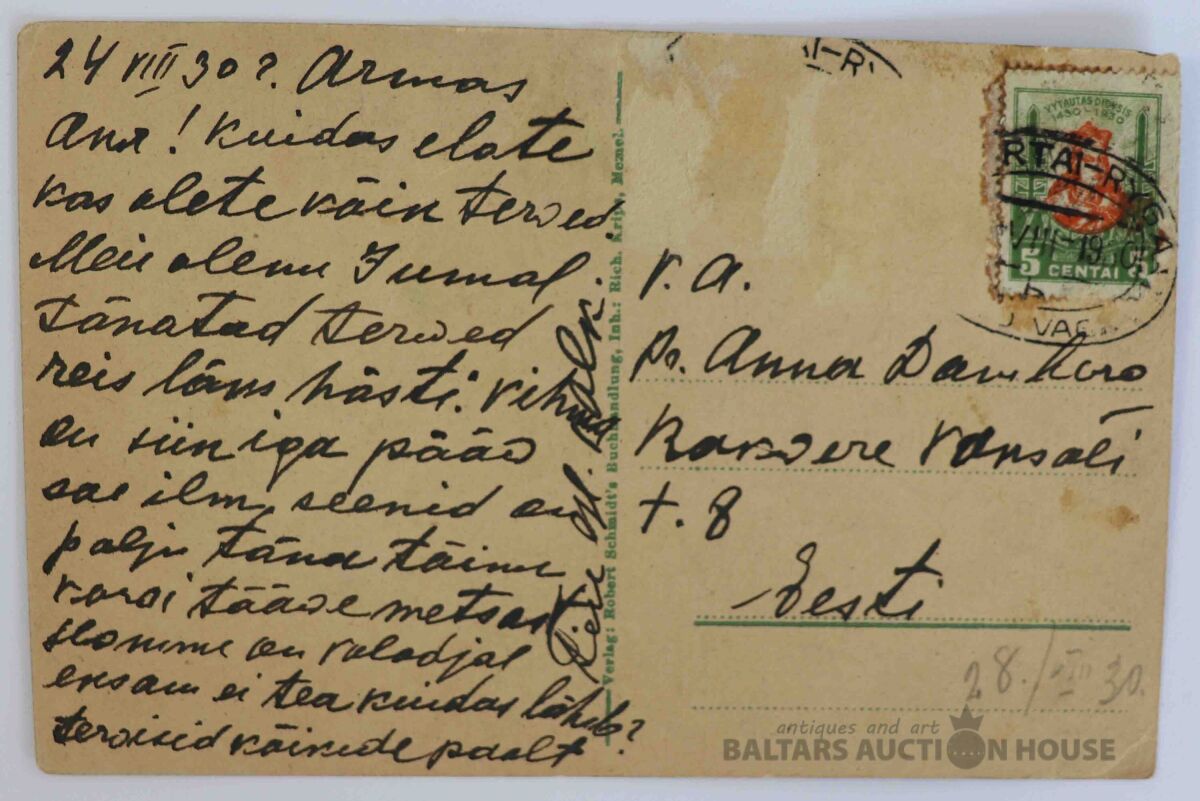 24 VIII 30 ?. Armas
Ann! Kuidas elate
kas olete kõik terwed.
Meie oleme Jumal
tänatud terwed
reis läks hästi. Vihma
on siin iga pääw
sae ilm, seenid on
palju täna tõime
korwi tääwe metsast
on Volodjal
eksam ei tea kuidas läheb?
terwisid kõikide poolt
Verlag: Robert Schmidt's Buchhandlung, Inh.: Rich. Krips, Memel.
AI-R
VYTAUTAS DIDYSIS
1430-1930
RTAI-RYGA
VIII-19
5 CENTAI 5
VAG
v. a.
pr. Anna
Rakwere Vaksali
t. 8
Eesti
28./VIII 30.
antiques and art
BALTARS AUCTION HOUSE